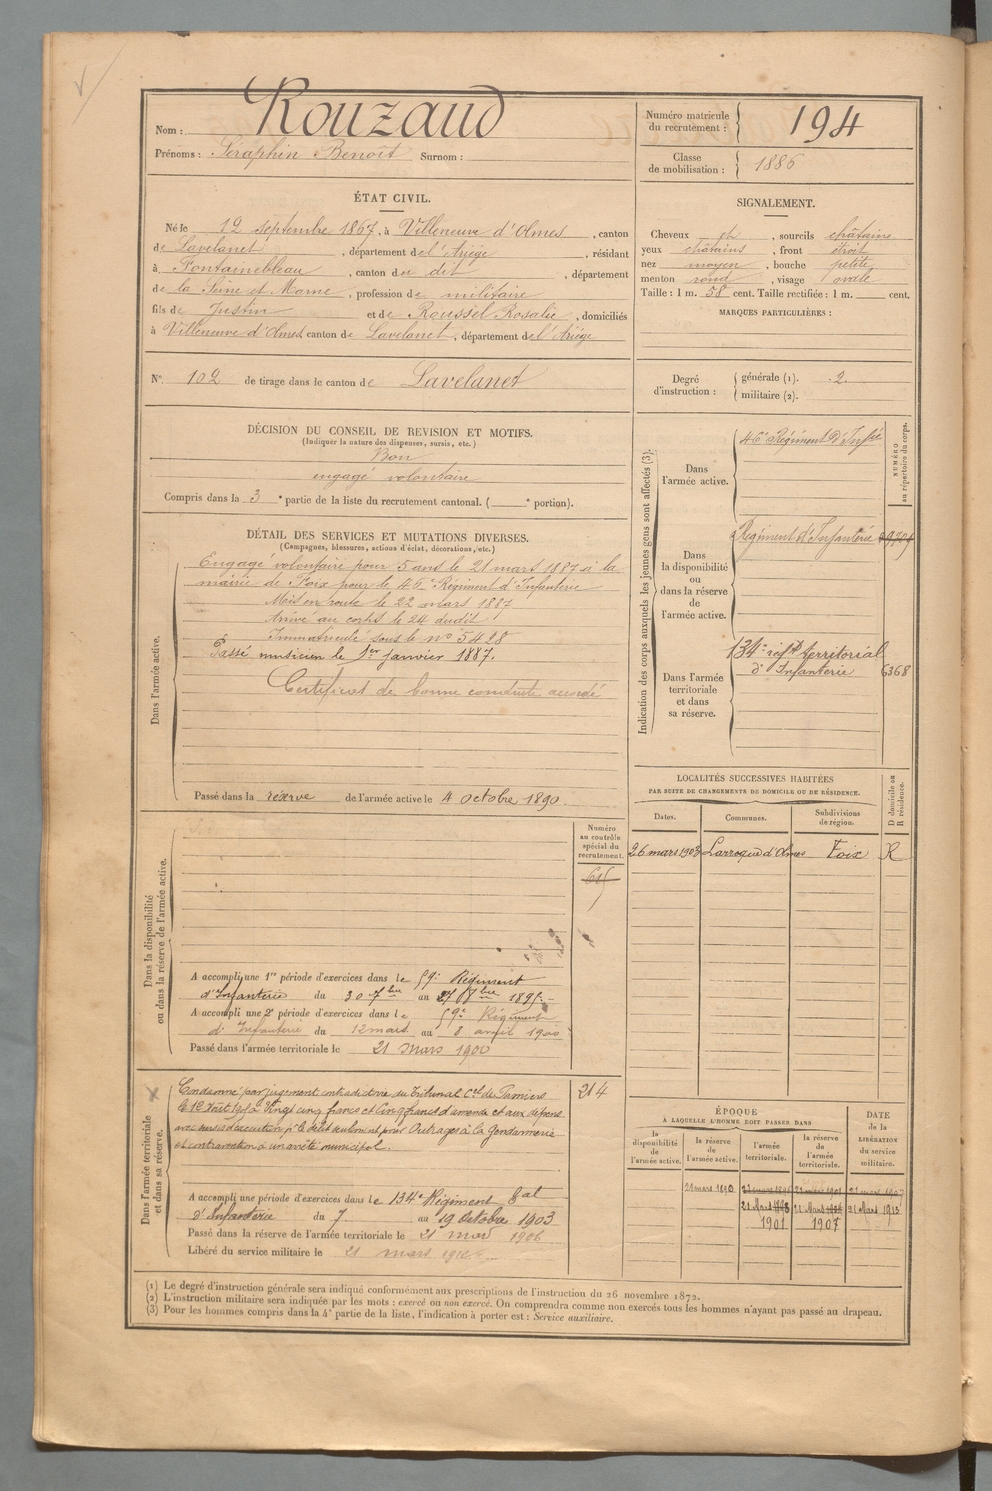 Nom : Rouzaud
Prénoms : Séraphin Benoît Surnom :
Numéro matricule du recrutement : 194
Classe de mobilisation : 1886
ÉTAT CIVIL.
Né le 12 septembre 1867, à Villeneuve d'Olmes, canton
de Lavelanet, département de l'Ariège, résidant
à Fontainebleau, canton du dit, département
de la Seine et Marne, profession de militaire
fils de Justin et de Roussel Rosalie, domiciliés
à Villeneuve d'Olmes canton de Lavelanet, département de l'Ariège
N° 102 de tirage dans le canton de Lavelanet
SIGNALEMENT.
Cheveux ch, sourcils châtains
yeux châtains, front étroit
nez moyen, bouche petite
menton rond, visage ovale
Taille : 1 m. 58 cent. Taille rectifiée : 1 m. cent.
MARQUES PARTICULIÈRES :
Degré d'instruction : générale (1). 2.
militaire (2).
DÉCISION DU CONSEIL DE REVISION ET MOTIFS.
(Indiquer la nature des dispenses, sursis, etc.)
Bon
engagé volontaire
Compris dans la 3e partie de la liste du recrutement cantonal. ( e portion).
DÉTAIL DES SERVICES ET MUTATIONS DIVERSES.
(Campagnes, blessures, actions d'éclat, décorations, etc.)
Dans l'armée active.
Engagé volontaire pour 5 ans le 21 mars 1887 à la
mairie de Foix pour le 46e Régiment d'Infanterie
Mis en route le 22 mars 1887
Arrivé au corps le 24 dudit
Immatriculé sous le n° 5428
Passé musicien le 1er janvier 1887.
Certificat de bonne conduite accordé
Passé dans la réserve de l'armée active le 4 octobre 1890.
Indication des corps auxquels les jeunes gens sont affectés (3).
NUMÉRO au répertoire du corps.
Dans l'armée active.
46e Régiment d'Infie
Dans la disponibilité ou dans la réserve de l'armée active.
Régiment d'Infanterie
Dans l'armée territoriale et dans sa réserve.
134e régt territorial
d'Infanterie 6368
LOCALITÉS SUCCESSIVES HABITÉES
PAR SUITE DE CHANGEMENTS DE DOMICILE OU DE RÉSIDENCE.
D domicile ou R résidence.
Dates. Communes. Subdivisions de région.
26 mars 1903 Larroque d'Olmes Foix R
Dans la disponibilité ou dans la réserve de l'armée active.
Numéro au contrôle spécial du recrutement.
A accompli une 1re période d'exercices dans le 59e Régiment
d'Infanterie du 30 7bre au 27 8bre 1895.
A accompli une 2e période d'exercices dans le 59e Régiment
d'Infanterie du 12 mars au 8 avril 1900
Passé dans l'armée territoriale le 21 mars 1900
Dans l'armée territoriale et dans sa réserve.
214
Condamné par jugement contradictoire du Tribunal Cel de Pamiers
à Vingt cinq francs et Cinq francs d'amende et aux dépens
avec sursis d'exécution pr le délit seulement pour Outrages à la Gendarmerie
et contravention à un arrêté municipal.
A accompli une période d'exercices dans le 134e Régiment Tal
d'Infanterie du 7 au 19 Octobre 1903
Passé dans la réserve de l'armée territoriale le 21 mars 1906
Libéré du service militaire le 21 mars 1912
ÉPOQUE
À LAQUELLE L'HOMME DOIT PASSER DANS
la disponibilité de l'armée active.
la réserve de l'armée active.
l'armée territoriale.
la réserve de l'armée territoriale.
DATE de la LIBÉRATION du service militaire.
21 mars 1890
21 mars 1901
21 mars 1907
21 mars 1913
(1) Le degré d'instruction générale sera indiqué conformément aux prescriptions de l'instruction du 26 novembre 1872.
(2) L'instruction militaire sera indiquée par les mots : exercé ou non exercé. On comprendra comme non exercés tous les hommes n'ayant pas passé au drapeau.
(3) Pour les hommes compris dans la 4e partie de la liste, l'indication à porter est : Service auxiliaire.